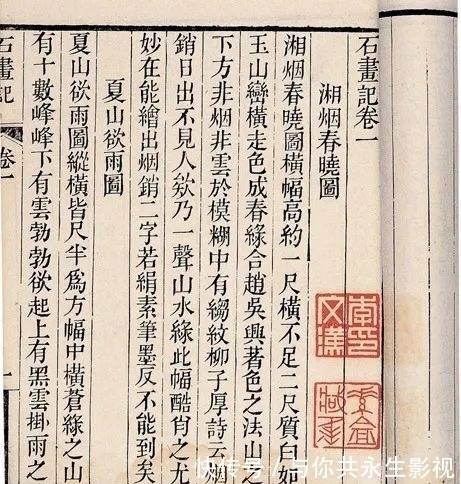 石畫記卷一
湘烟春曉圖
湘烟春曉圖橫幅高約一尺橫不足二尺質白如
玉山巒橫走色成春綠合趙吳興著色之法山之
下方非烟非雲於模糊中有縐紋柳子厚詩云烟
銷日出不見人欸乃一聲山水綠此幅酷肖之尤
妙在能繪出烟銷二字若絹素筆墨反不能到矣
夏山欲雨圖
夏山欲雨圖縱橫皆尺半爲方幅中橫蒼綠之山
有十數峰峰下有雲勃勃欲起上有黑雲掛雨之
石畫記 卷一 一
快传号 / 与你共永生影视